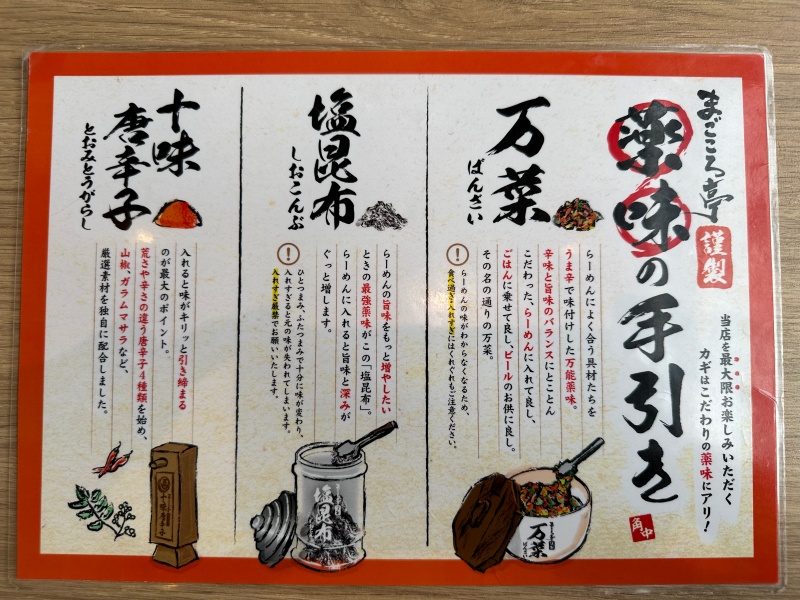 まごころ亭
謹製
薬味の手引き
当店を最大限お楽しみいただく
カギはこだわりの薬味にアリ！
角中
万菜
ばんさい
らーめんによく合う具材たちを
うま辛で味付けした万能薬味。
辛味と旨味のバランスにとことん
こだわった、らーめんに入れて良し、
ごはんに乗せて良し、ビールのお供に良し。
その名の通りの万菜。
！
らーめんの味がわからなくなるため、
食べ過ぎ・入れすぎにはくれぐれもご注意ください。
万菜
ばんさい
塩昆布
しおこんぶ
らーめんの旨味をもっと増やしたい
ときの最強薬味がこの「塩昆布」。
らーめんに入れると旨味と深みが
ぐっと増します。
！
ひとつまみ、ふたつまみで十分に味が変わり、
入れすぎると元の味が失われてしまいます。
入れすぎ厳禁でお願いいたします。
塩昆布
十味
唐辛子
とおみとうがらし
入れると味がキリッと引き締まる
のが最大のポイント。
荒さや辛さの違う唐辛子4種類を始め、
山椒、ガラムマサラなど、
厳選素材を独自に配合しました。
十味唐辛子